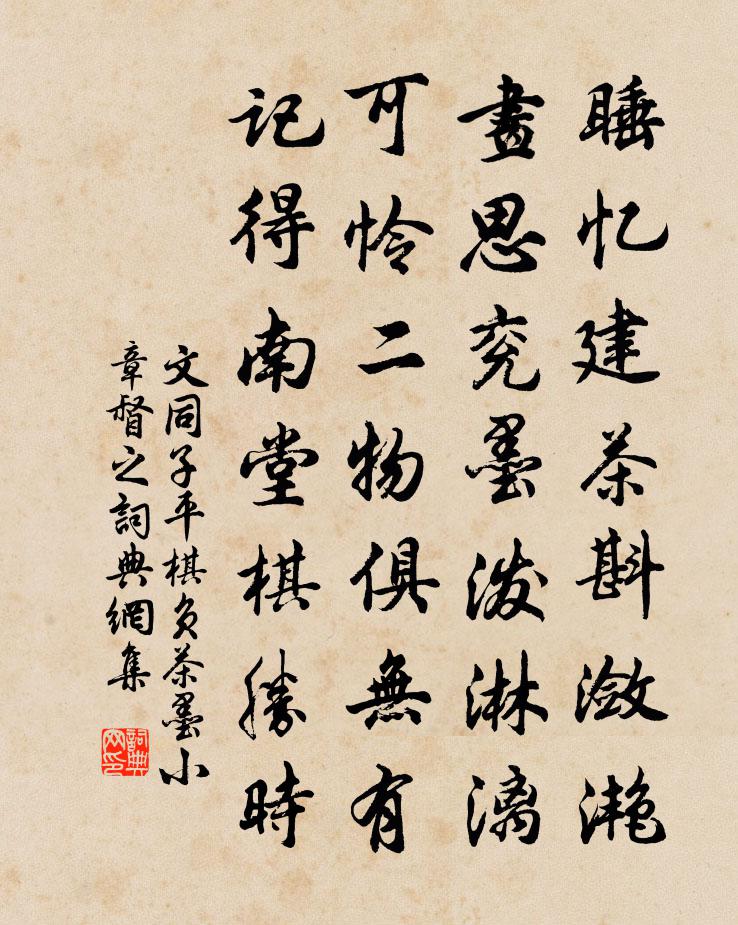 睡忆建茶斟潋滟
畫思兖墨泼淋漓
可怜二物俱無有
记得南堂棋勝時
文同子平棋负茶墨小
章督之詞典網集
詞典
网印